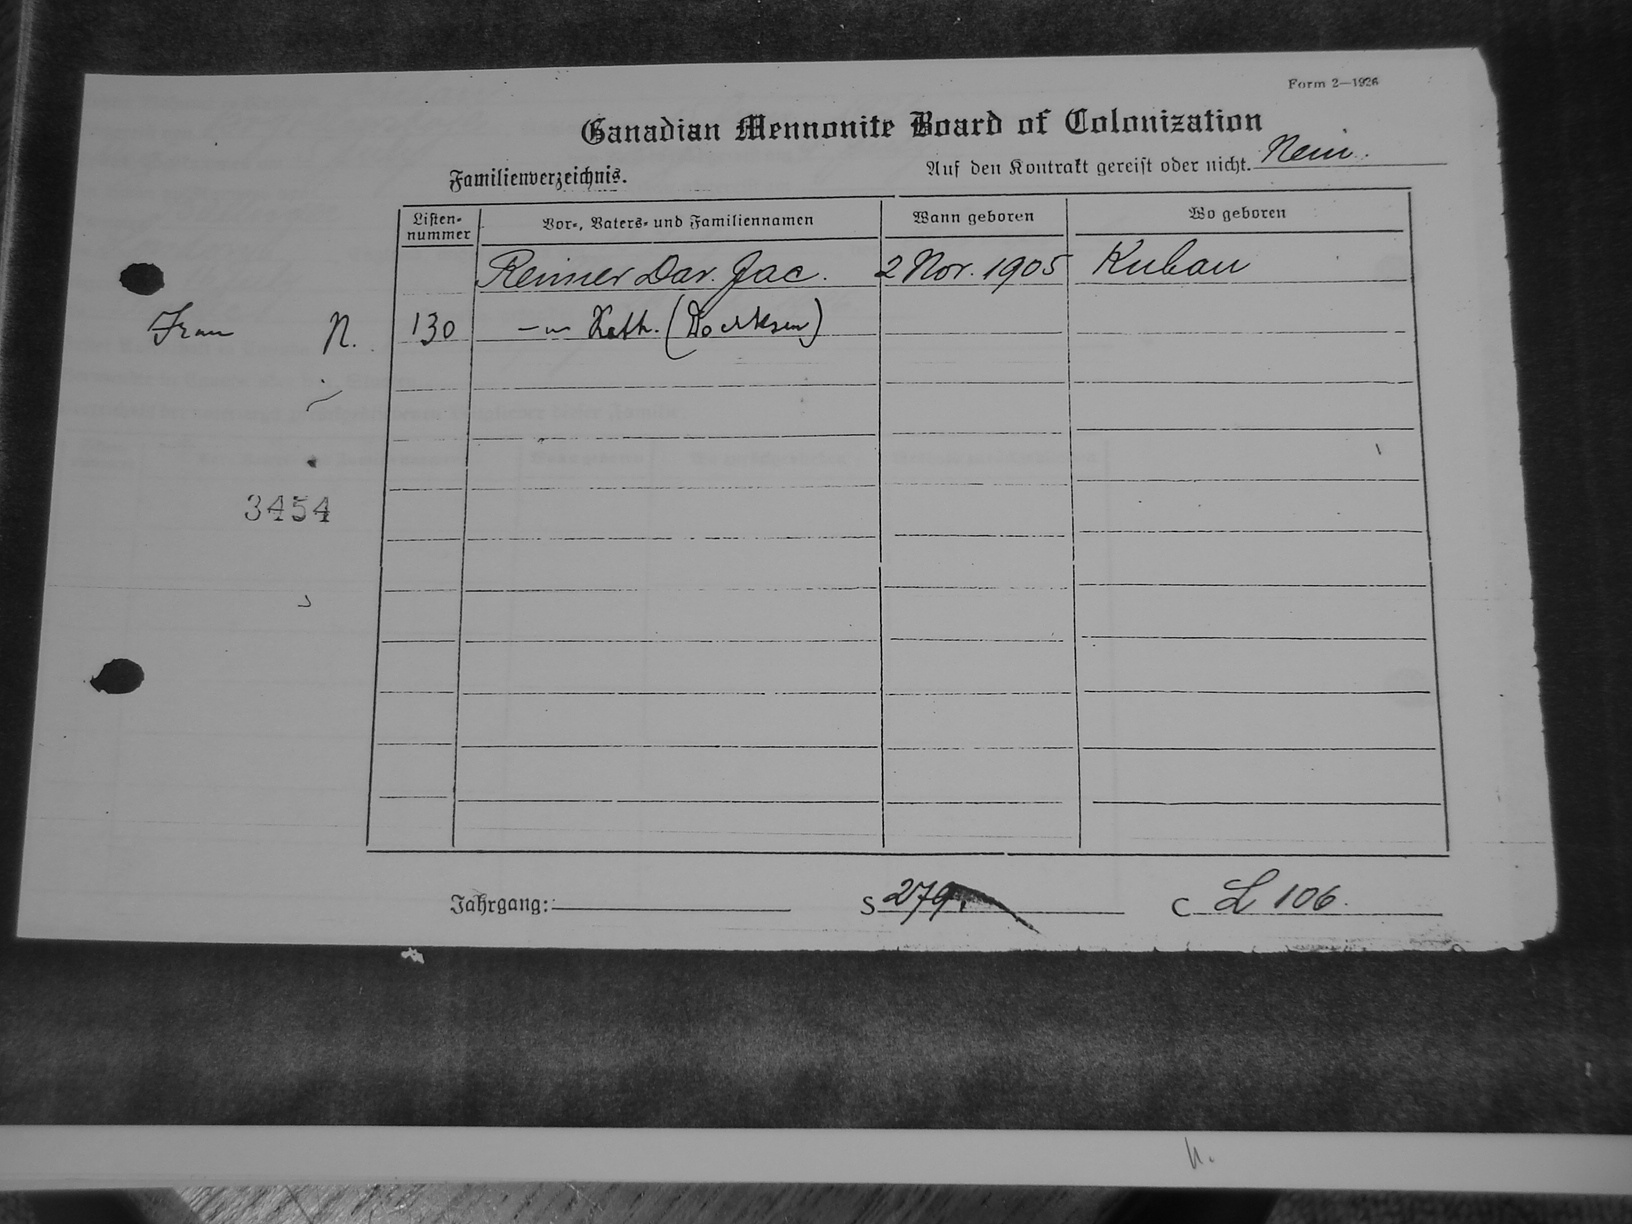 Form 2—1926
Canadian Mennonite Board of Colonization
Familienverzeichnis.
Auf den Kontrakt gereist oder nicht. Nein.
Listen-
nummer
Vor-, Vaters- und Familiennamen
Wann geboren
Wo geboren
Reimer Dav. Jac. 2 Nov. 1905 Kuban
Frau N. 130 —"— Kath. (Doerksen)
3454
Jahrgang: S 279. C L 106.